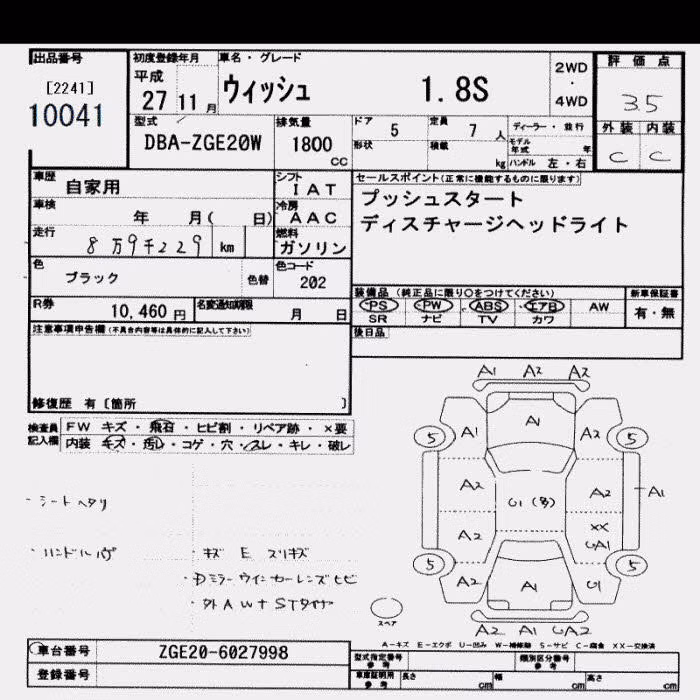 出品番号
[2241]
10041
初度登録年月
平成
27 11 月
車名・グレード
ウィッシュ 1.8S
2WD
・
4WD
評価点
3.5
外装 内装
C C
型式
DBA-ZGE20W
排気量
1800
CC
ドア 5
定員 7 人
形状
積載 kg
ディーラー・並行
モデル年式 年
ハンドル 左・右
車歴 自家用
車検 年 月( 日)
走行 8万9千229 km
シフト
IAT
冷房
AAC
燃料
ガソリン
色 ブラック 色替
色コード
202
セールスポイント(正常に機能するものに限ります)
プッシュスタート
ディスチャージヘッドライト
R券 10,460 円
名変通知期限 月 日
装備品 (純正品に限り○をつけてください)
PS PW ABS エアB AW
SR ナビ TV カワ
新車保証書
有・無
後日品
注意事項申告欄(不具合内容等は具体的に記入して下さい)
修復歴 有〔箇所 〕
検査員記入欄
FW キズ・飛石・ヒビ割・リペア跡・×要
内装 キズ・汚レ・コゲ・穴・スレ・キレ・破レ
・シートヘタリ
・キズ E スリキズ
・Dミラーウインカーレンズヒビ
・外AW+STタイヤ
A1 A2 A2
A1 A1 A2
5 5
A2 U1(多) A2 A1
A2 XX
UA1
5 5
A2 A1 U1
スペア
A2 A1 UA2
A-キズ E-エクボ U-凹み W-補修跡 S-サビ C-腐食 XX-交換済
車台番号 ZGE20-6027998
登録番号
型式指定番号
参考
類別区分番号
参考
車庫証明用
参考
長さ cm
幅 cm
高さ cm